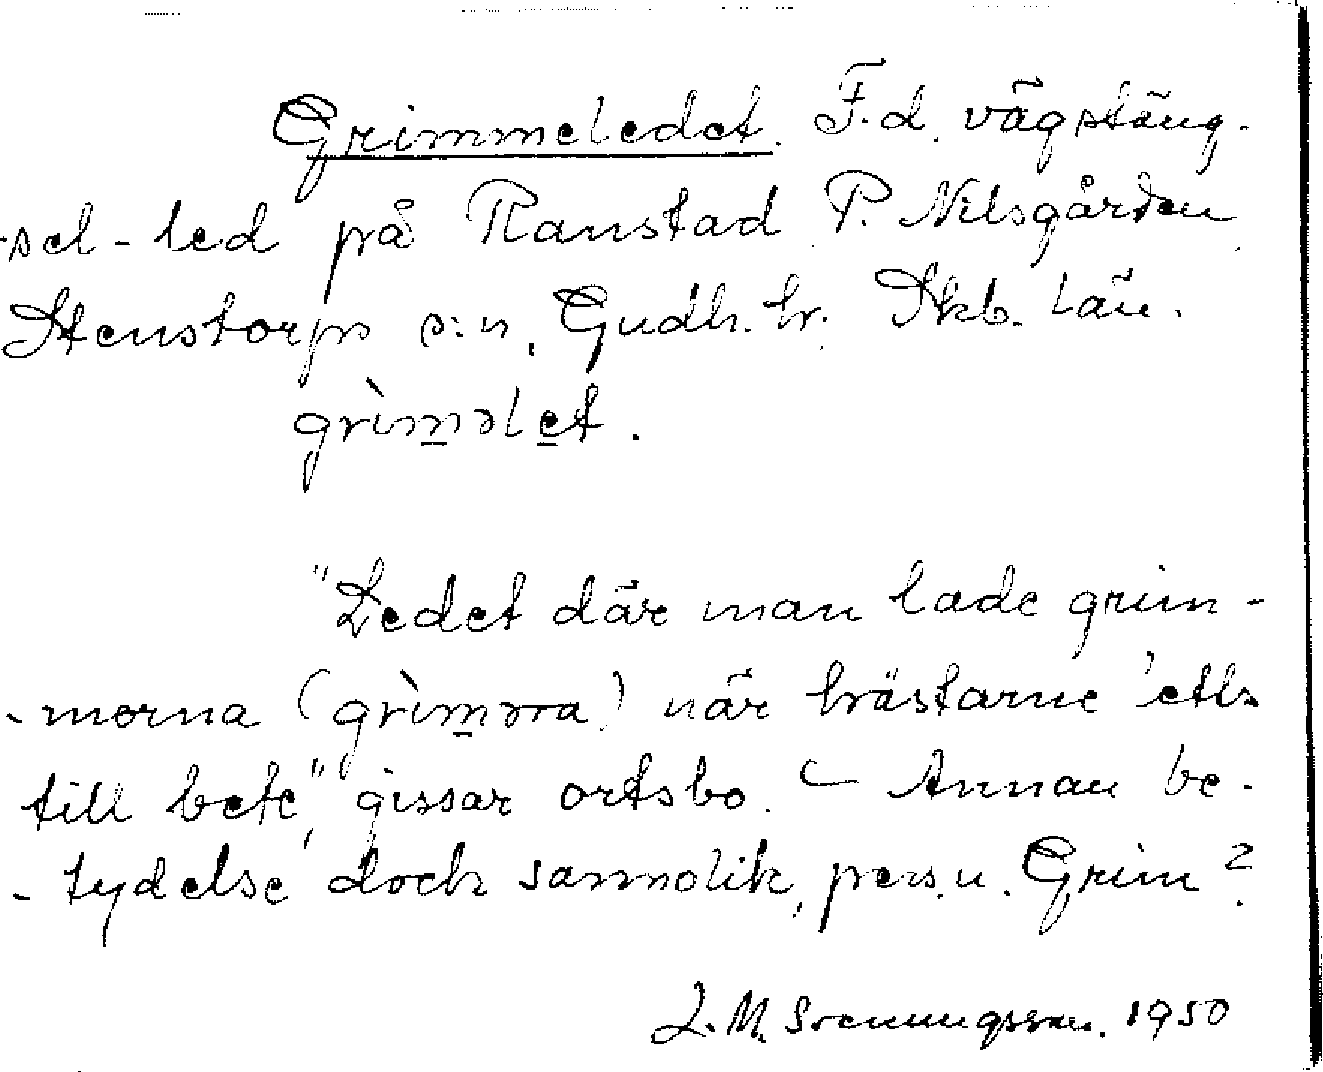 Grimmeledet. F.d. vägstäng-
-sel-led på Ranstad P. Nilsgården
Stenstorps s:n, Gudh. hr. Skb. län.
grìməlet.
"Ledet där man lade grim-
-morna (grìməra) när hästarne
till bete," gissar ortsbo. – Annan be-
-tydelse dock sannolik, pers.n. Grim?
L. M. Svenungsson. 1950